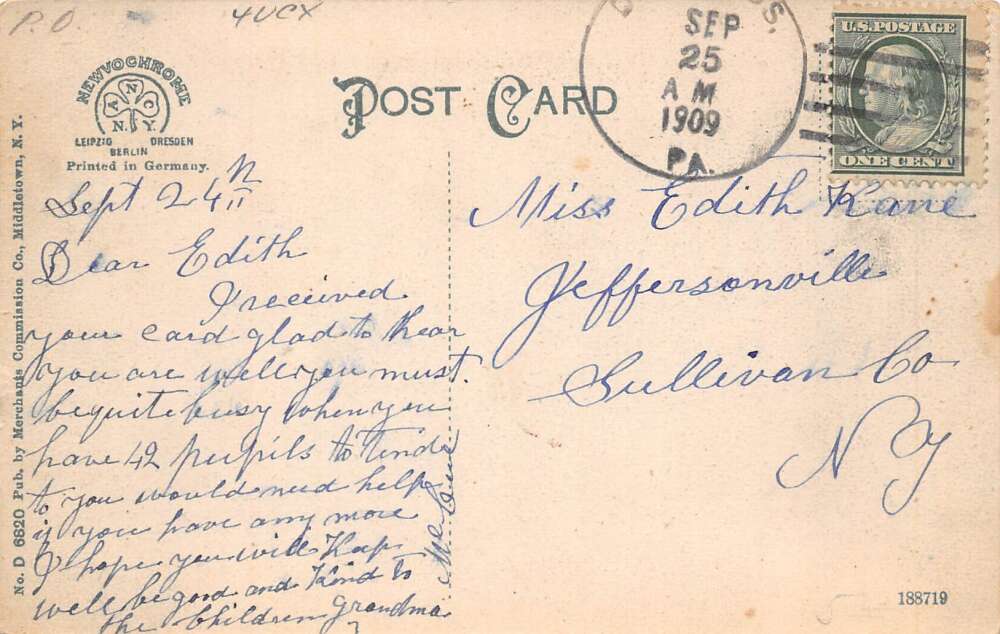 P.O. 4UCX
NEWVOCHROME
A N C
N.Y.
LEIPZIG DRESDEN
BERLIN
Printed in Germany.
POST CARD
SEP
25
A M
1909
PA.
U.S. POSTAGE
ONE CENT
No. D 6820 Pub. by Merchants Commission Co., Middletown, N. Y.
Sept 24 th
Dear Edith
I received
your card glad to hear
you are well you must
be quite busy when you
have 42 pupils to tend
to you would need help
if you have any more
I hope you will Keep
well be good and Kind to
the Children Grandma
Miss Edith Kane
Jeffersonville
Sullivan Co
N Y
188719